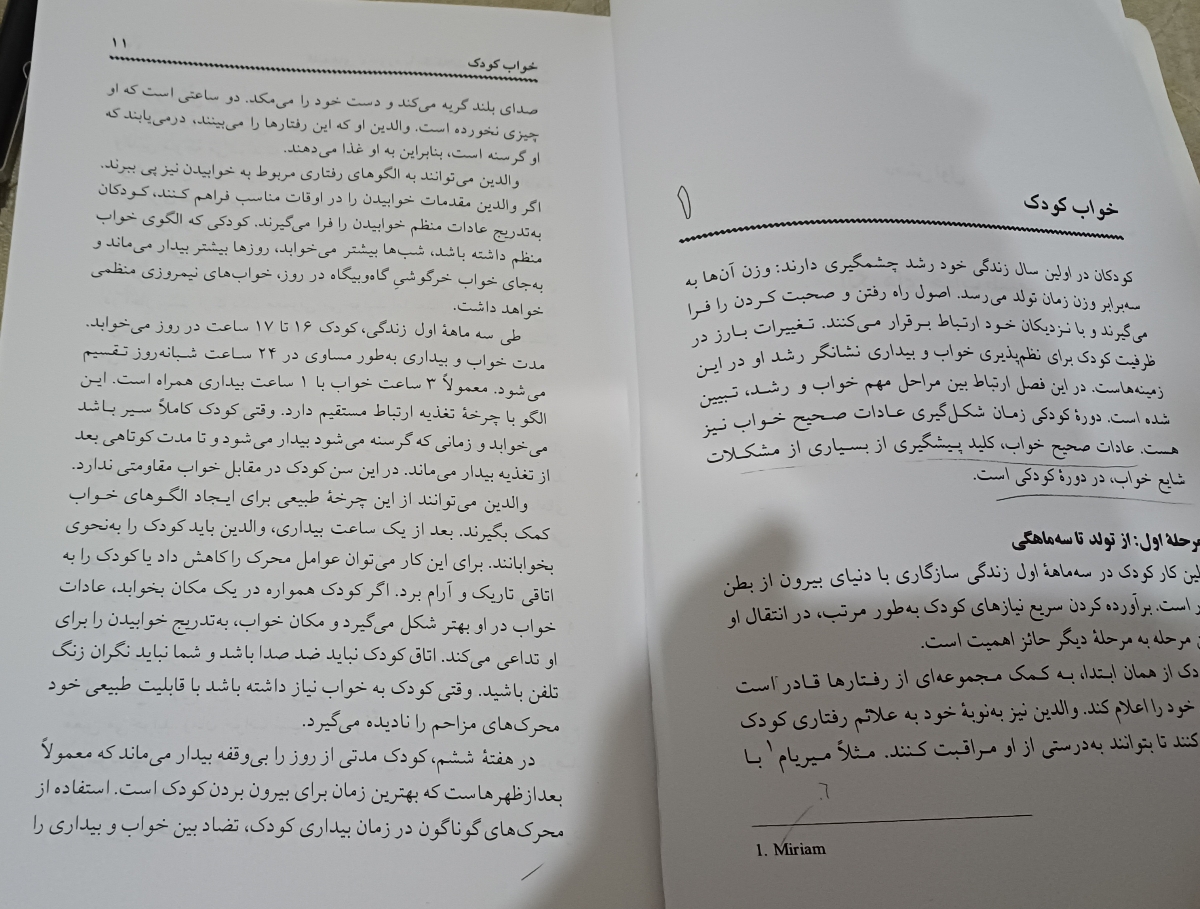 خواب کودک
کودکان در اولین سال زندگی خود رشد چشمگیری دارند: وزن آن‌ها به
سه‌برابر وزن زمان تولد می‌رسد. اصول راه رفتن و صحبت کردن را فرا
می‌گیرند و با نزدیکان خود ارتباط برقرار می‌کنند. تغییرات بارز در
ظرفیت کودک برای نظم‌پذیری خواب و بیداری نشانگر رشد او در این
زمینه‌هاست. در این فصل ارتباط بین مراحل مهم خواب و رشد، تبیین
شده است. دورهٔ کودکی زمان شکل‌گیری عادات صحیح خواب نیز
هست. عادات صحیح خواب، کلید پیشگیری از بسیاری از مشکلات
شایع خواب، در دورهٔ کودکی است.
مرحلهٔ اول: از تولد تا سه‌ماهگی
کار کودک در سه‌ماههٔ اول زندگی سازگاری با دنیای بیرون از بطن
است. برآورده کردن سریع نیازهای کودک به‌طور مرتب، در انتقال او
مرحله به مرحلهٔ دیگر حائز اهمیت است.
از همان ابتدا، به کمک مجموعه‌ای از رفتارها قادر است
خود را اعلام کند. والدین نیز به‌نوبهٔ خود به علائم رفتاری کودک
کنند تا بتوانند به‌درستی از او مراقبت کنند. مثلاً میریام۱ با
1. Miriam
خواب کودک ۱۱
صدای بلند گریه می‌کند و دست خود را می‌مکد. دو ساعتی است که او
چیزی نخورده است. والدین او که این رفتارها را می‌بینند، درمی‌یابند که
او گرسنه است، بنابراین به او غذا می‌دهند.
والدین می‌توانند به الگوهای رفتاری مربوط به خوابیدن نیز پی ببرند.
اگر والدین مقدمات خوابیدن را در اوقات مناسب فراهم کنند، کودکان
به‌تدریج عادات منظم خوابیدن را فرا می‌گیرند. کودکی که الگوی خواب
منظم داشته باشد، شب‌ها بیشتر می‌خوابد، روزها بیشتر بیدار می‌ماند و
به‌جای خواب خرگوشیِ گاه‌وبیگاه در روز، خواب‌های نیمروزی منظمی
خواهد داشت.
طی سه ماههٔ اول زندگی، کودک ۱۶ تا ۱۷ ساعت در روز می‌خوابد.
مدت خواب و بیداری به‌طور مساوی در ۲۴ ساعت شبانه‌روز تقسیم
می‌شود. معمولاً ۳ ساعت خواب با ۱ ساعت بیداری همراه است. این
الگو با چرخهٔ تغذیه ارتباط مستقیم دارد. وقتی کودک کاملاً سیر باشد
می‌خوابد و زمانی که گرسنه می‌شود بیدار می‌شود و تا مدت کوتاهی بعد
از تغذیه بیدار می‌ماند. در این سن کودک در مقابل خواب مقاومتی ندارد.
والدین می‌توانند از این چرخهٔ طبیعی برای ایجاد الگوهای خواب
کمک بگیرند. بعد از یک ساعت بیداری، والدین باید کودک را به‌نحوی
بخوابانند. برای این کار می‌توان عوامل محرک را کاهش داد یا کودک را به
اتاقی تاریک و آرام برد. اگر کودک همواره در یک مکان بخوابد، عادات
خواب در او بهتر شکل می‌گیرد و مکان خواب، به‌تدریج خوابیدن را برای
او تداعی می‌کند. اتاق کودک نباید ضد صدا باشد و شما نباید نگران زنگ
تلفن باشید. وقتی کودک به خواب نیاز داشته باشد با قابلیت طبیعی خود
محرک‌های مزاحم را نادیده می‌گیرد.
در هفتهٔ ششم، کودک مدتی از روز را بی‌وقفه بیدار می‌ماند که معمولاً
بعدازظهرهاست که بهترین زمان برای بیرون بردن کودک است. استفاده از
محرک‌های گوناگون در زمان بیداری کودک، تضاد بین خواب و بیداری را